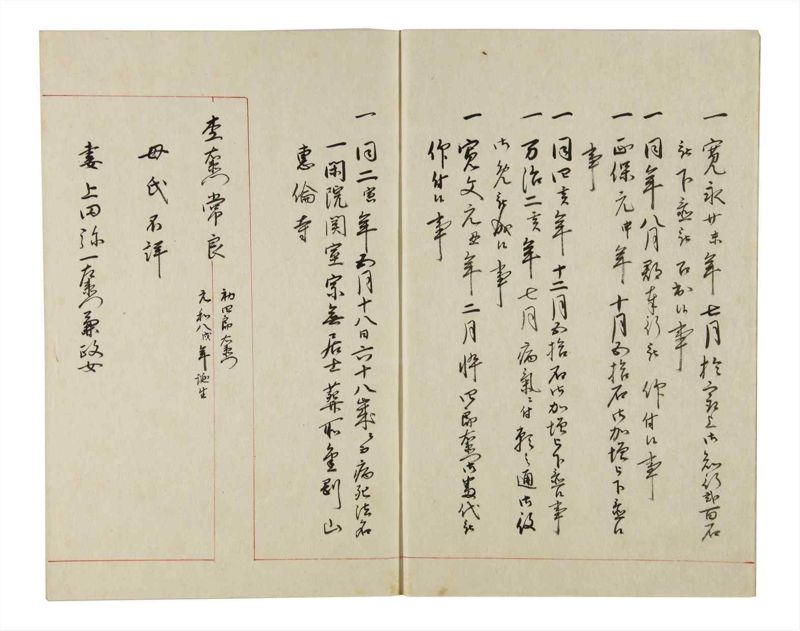 一 寛永廿未年七月於家上御知行弐百石
被下置 召出候事
一 同年八月郡奉行被 仰付候事
一 正保元申年十月五拾石御加増被下置候
事
一 同四亥年十二月五拾石御加増被下置候事
一 万治二亥年七月病気ニ付願之通御役
御免被成候事
一 寛文元丑年二月悴四郎左衛門御番代被
仰付候事
一 同二寅年五月十八日六十八歳ニ而病死法名
一閑院関室宗無居士葬所金剛山
恵倫寺
左衛門常良
初四郎左衛門
元和八戌年誕生
母氏不詳
妻上田弥一右衛門兼政女